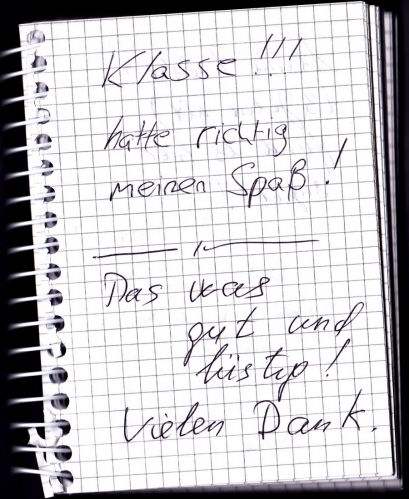 Klasse!!!
hatte richtig
meinen Spaß!
Das war
gut und
lustig!
Vielen Dank.